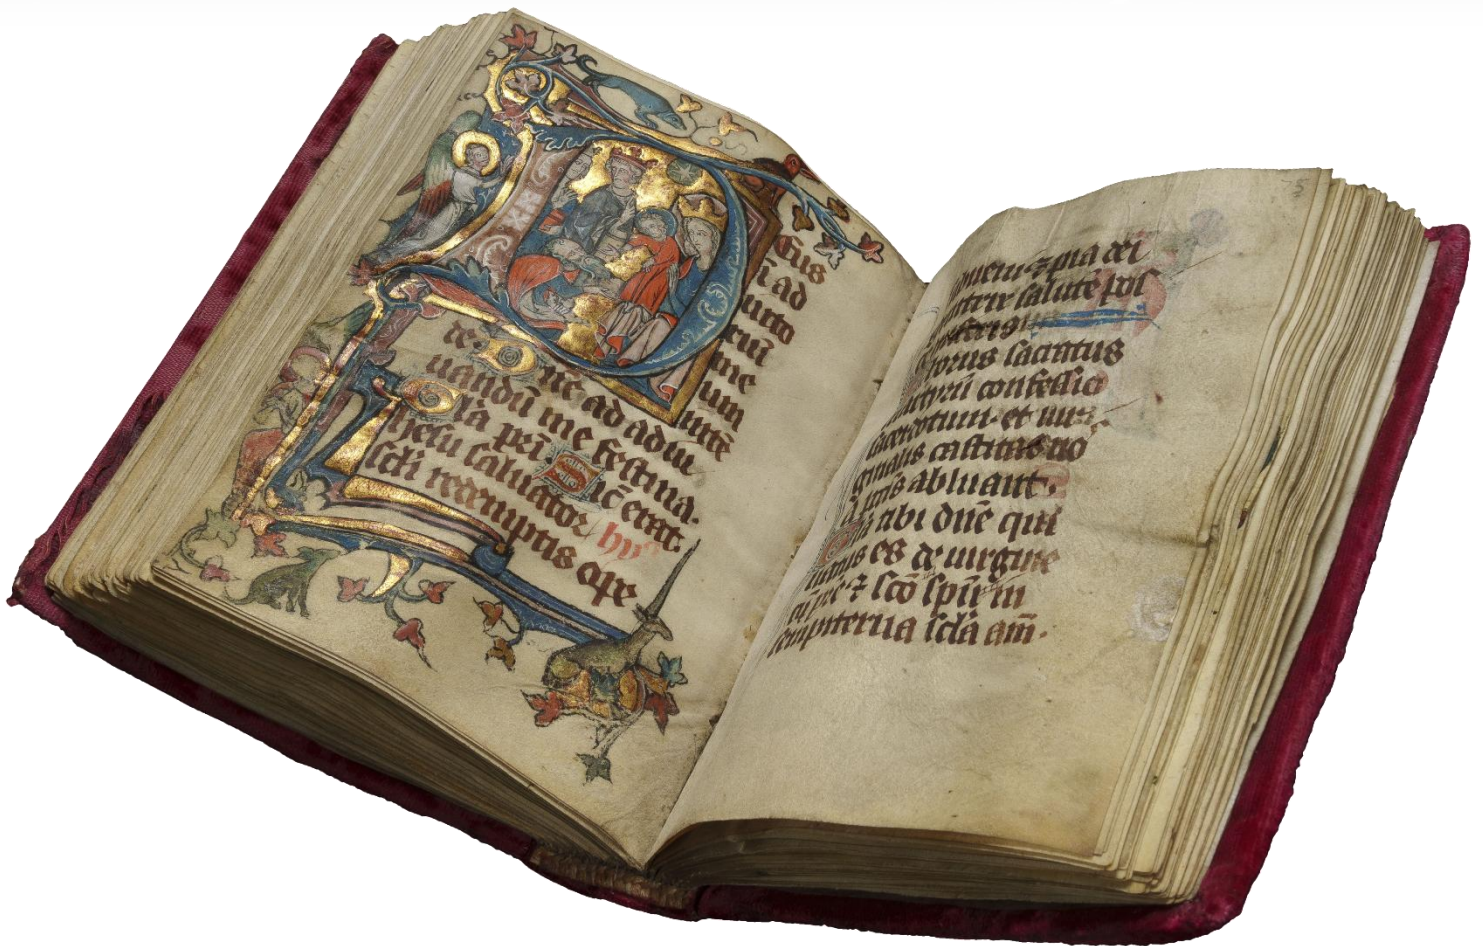 eus
ī ad
iuto
riū
me
um
intē
de· Dn̄e ad adiu
uandū me festina·
Gl̄a pri ic̄ erat·
Ihesu saluator
scl̄i redemptis ope
⁊ pia dei
salutē pos
Chorus sacratus
martyrū confessio
sacerdotum· et uir
ginalis castitas
abluant·
Gl̄a tibi dn̄e qui
natus es de uirgine
cū pr̄e ⁊ sc̄o spū in
sempiterna scl̄a am̄·